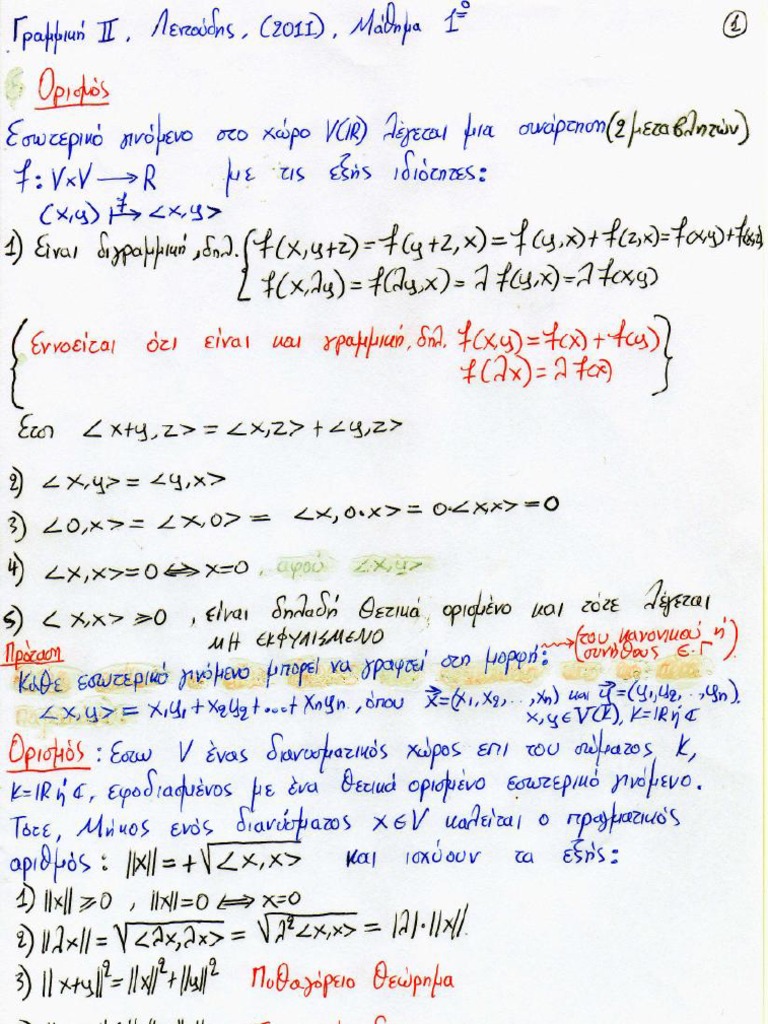 Γραμμική ΙΙ, Λεντούδης, (2011), Μάθημα 1º
1
Ορισμός
Εσωτερικό γινόμενο στο χώρο V(ℝ) λέγεται μια συνάρτηση (2 μεταβλητών)
f: V×V → R με τις εξής ιδιότητες:
(x,y) ↦f <x,y>
1) Είναι διγραμμική, δηλ. { f(x,y+z) = f(y+z,x) = f(y,x)+f(z,x) = f(x,y)+f(x,z)
f(x,λy) = f(λy,x) = λ f(y,x) = λ f(x,y)
{ Εννοείται ότι είναι και γραμμική, δηλ. f(x,y) = f(x) + f(y)
f(λx) = λ f(x) }
Ετσι <x+y,z> = <x,z> + <y,z>
2) <x,y> = <y,x>
3) <0,x> = <x,0> = <x,0·x> = 0·<x,x> = 0
4) <x,x> = 0 ⇔ x=0, αφού <x,y>
5) <x,x> ≥ 0, είναι δηλαδή θετικά ορισμένο και τότε λέγεται
ΜΗ ΕΚΦΥΛΙΣΜΕΝΟ
Πρόταση
Κάθε εσωτερικό γινόμενο μπορεί να γραφτεί στη μορφή: → (του κανονικού ή συνήθους Ε.Γ)
<x,y> = x₁y₁ + x₂y₂ + ... + xₙyₙ, όπου x⃗=(x₁,x₂,..,xₙ) και y⃗=(y₁,y₂,..,yₙ).
x,y ∈ V(K), K=ℝ ή ℂ
Ορισμός: Εστω V ένας διανυσματικός χώρος επι του σώματος K,
K=ℝ ή ℂ, εφοδιασμένος με ένα θετικά ορισμένο εσωτερικό γινόμενο.
Τότε, Μήκος ενός διανύσματος x∈V καλείται ο πραγματικός
αριθμός: ||x|| = +√<x,x> και ισχύουν τα εξής:
1) ||x|| ≥ 0, ||x|| = 0 ⇔ x=0
2) ||λx|| = √<λx,λx> = √λ²<x,x> = |λ|·||x||.
3) ||x+y||² = ||x||² + ||y||² Πυθαγόρειο θεώρημα